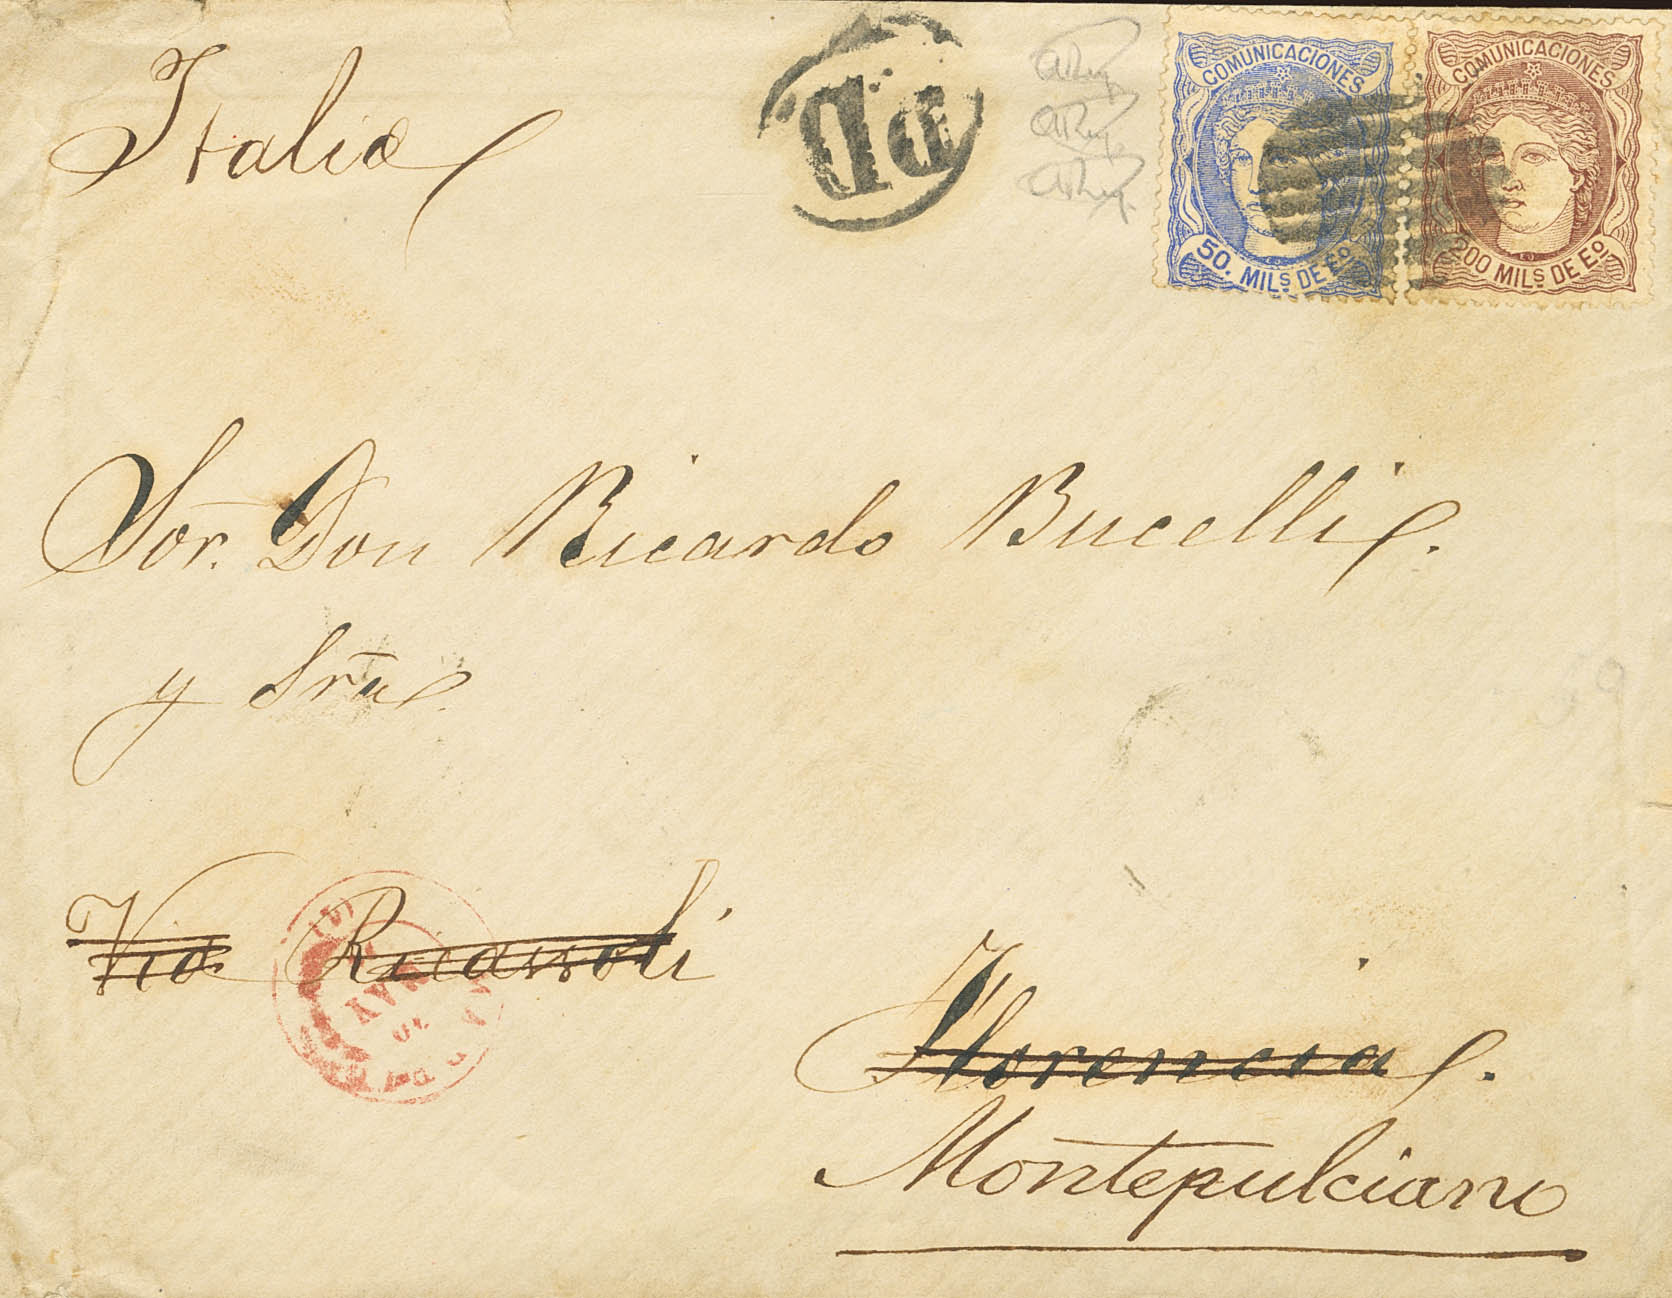 Italia
PD
COMUNICACIONES
50. MILS DE EO
COMUNICACIONES
200 MILS DE EO
Sor. Don Ricardo Bucelli.
y Sra
Via Ricasoli
Florencia.
Montepulciano